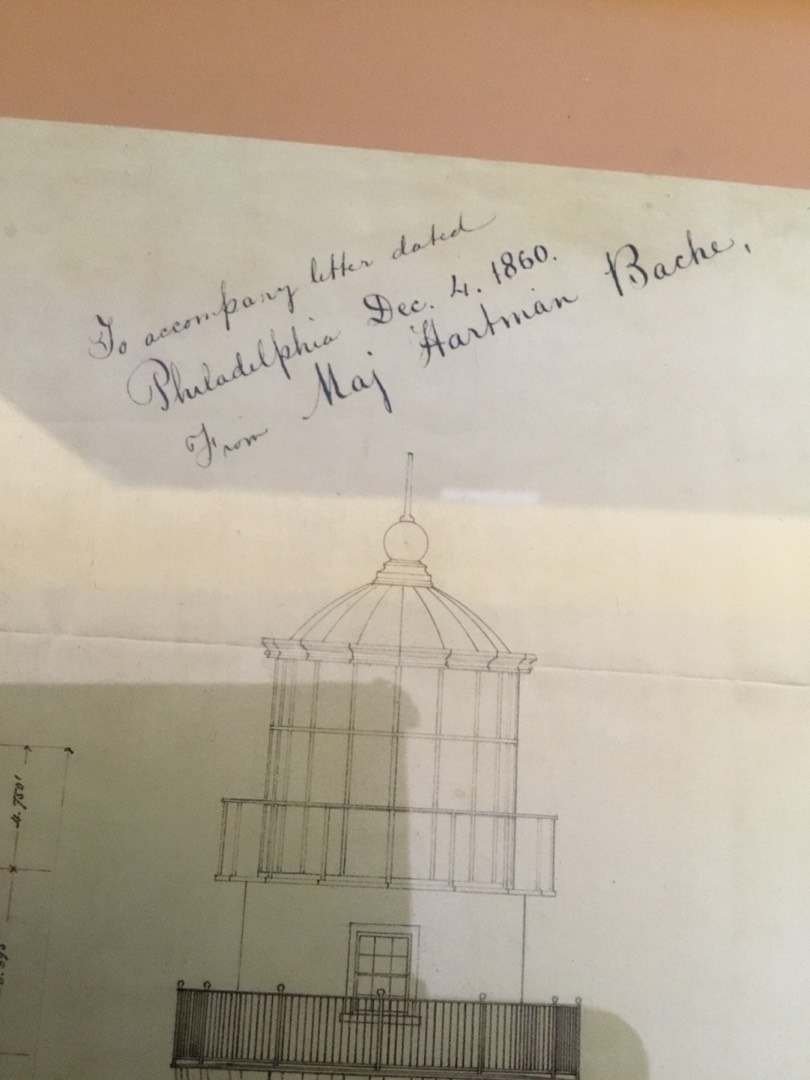 To accompany letter dated
Philadelphia Dec. 4. 1860.
From Maj Hartman Bache,
4.750'